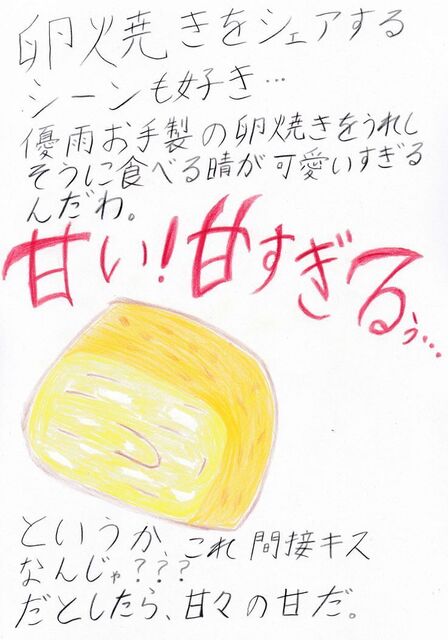 卵焼きをシェアする
シーンも好き…
優雨お手製の卵焼きをうれし
そうに食べる晴が可愛いすぎる
んだわ。
甘い!甘すぎるぅ…
というか、これ間接キス
なんじゃ???
だとしたら、甘々の甘だ。